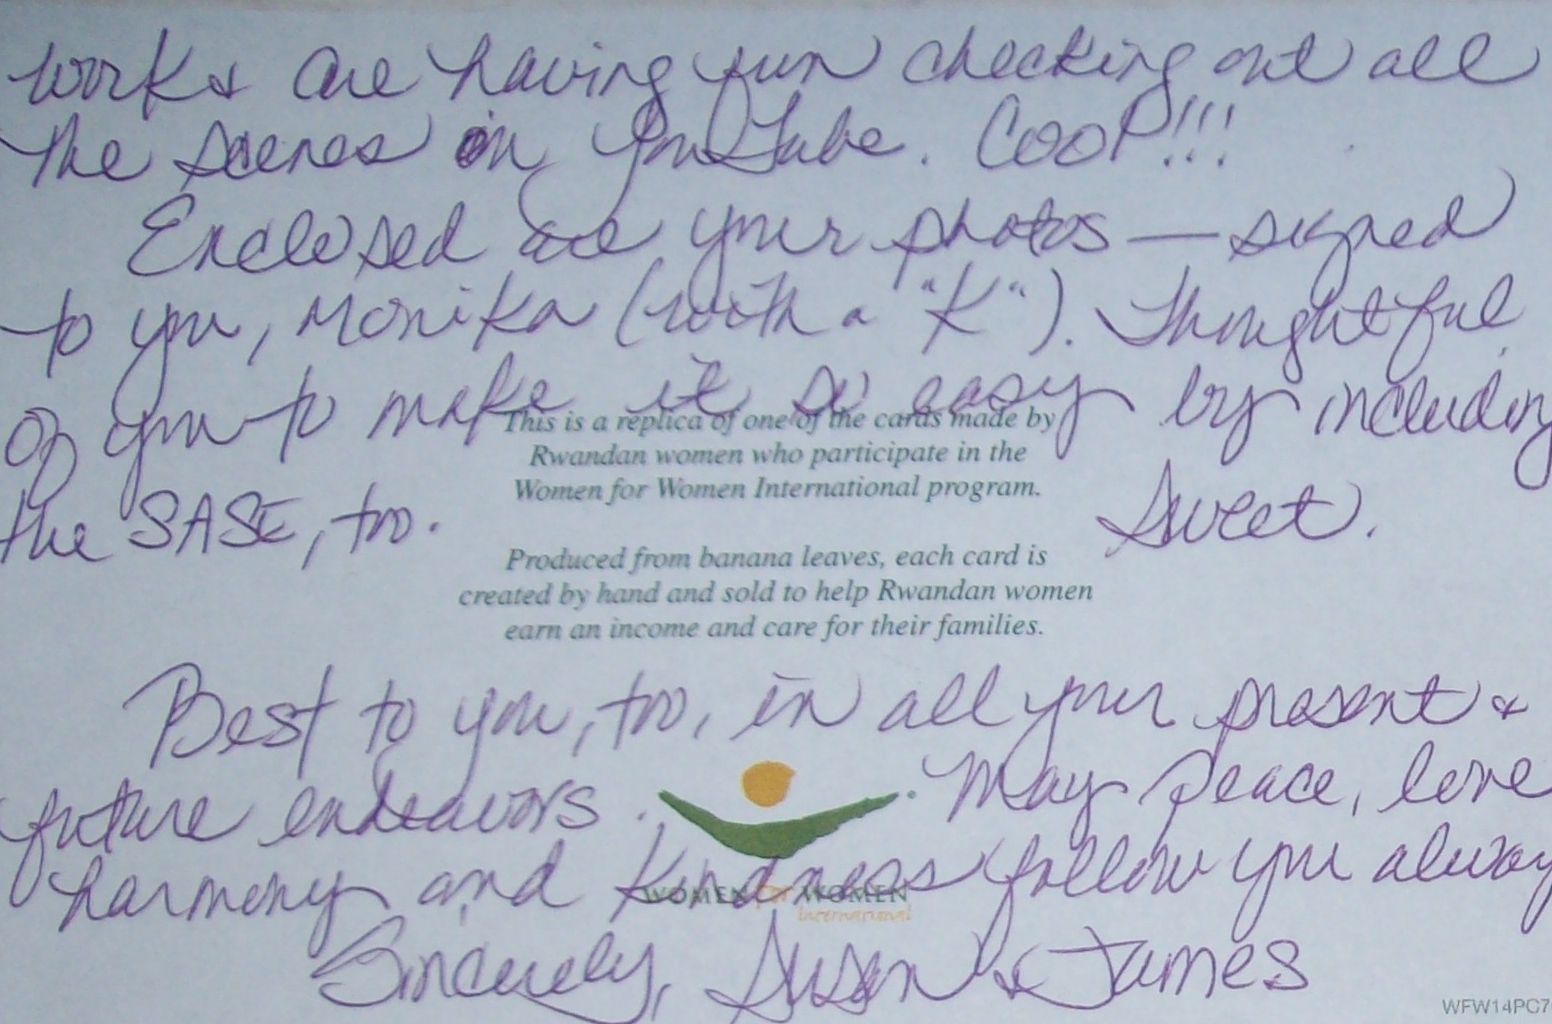 work & are having fun checking out all
the scenes on YouTube. COOL!!!
Enclosed are your photos — signed
to you, Monika (with a "K"). Thoughtful
of you to make it so easy by including
This is a replica of one of the cards made by
Rwandan women who participate in the
Women for Women International program.
the SASE, too. Sweet.
Produced from banana leaves, each card is
created by hand and sold to help Rwandan women
earn an income and care for their families.
Best to you, too, in all your present &
future endeavors. May peace, love
harmony and kindness follow you always
WOMEN for WOMEN
International
Sincerely, Susan & James
WFW14PC7